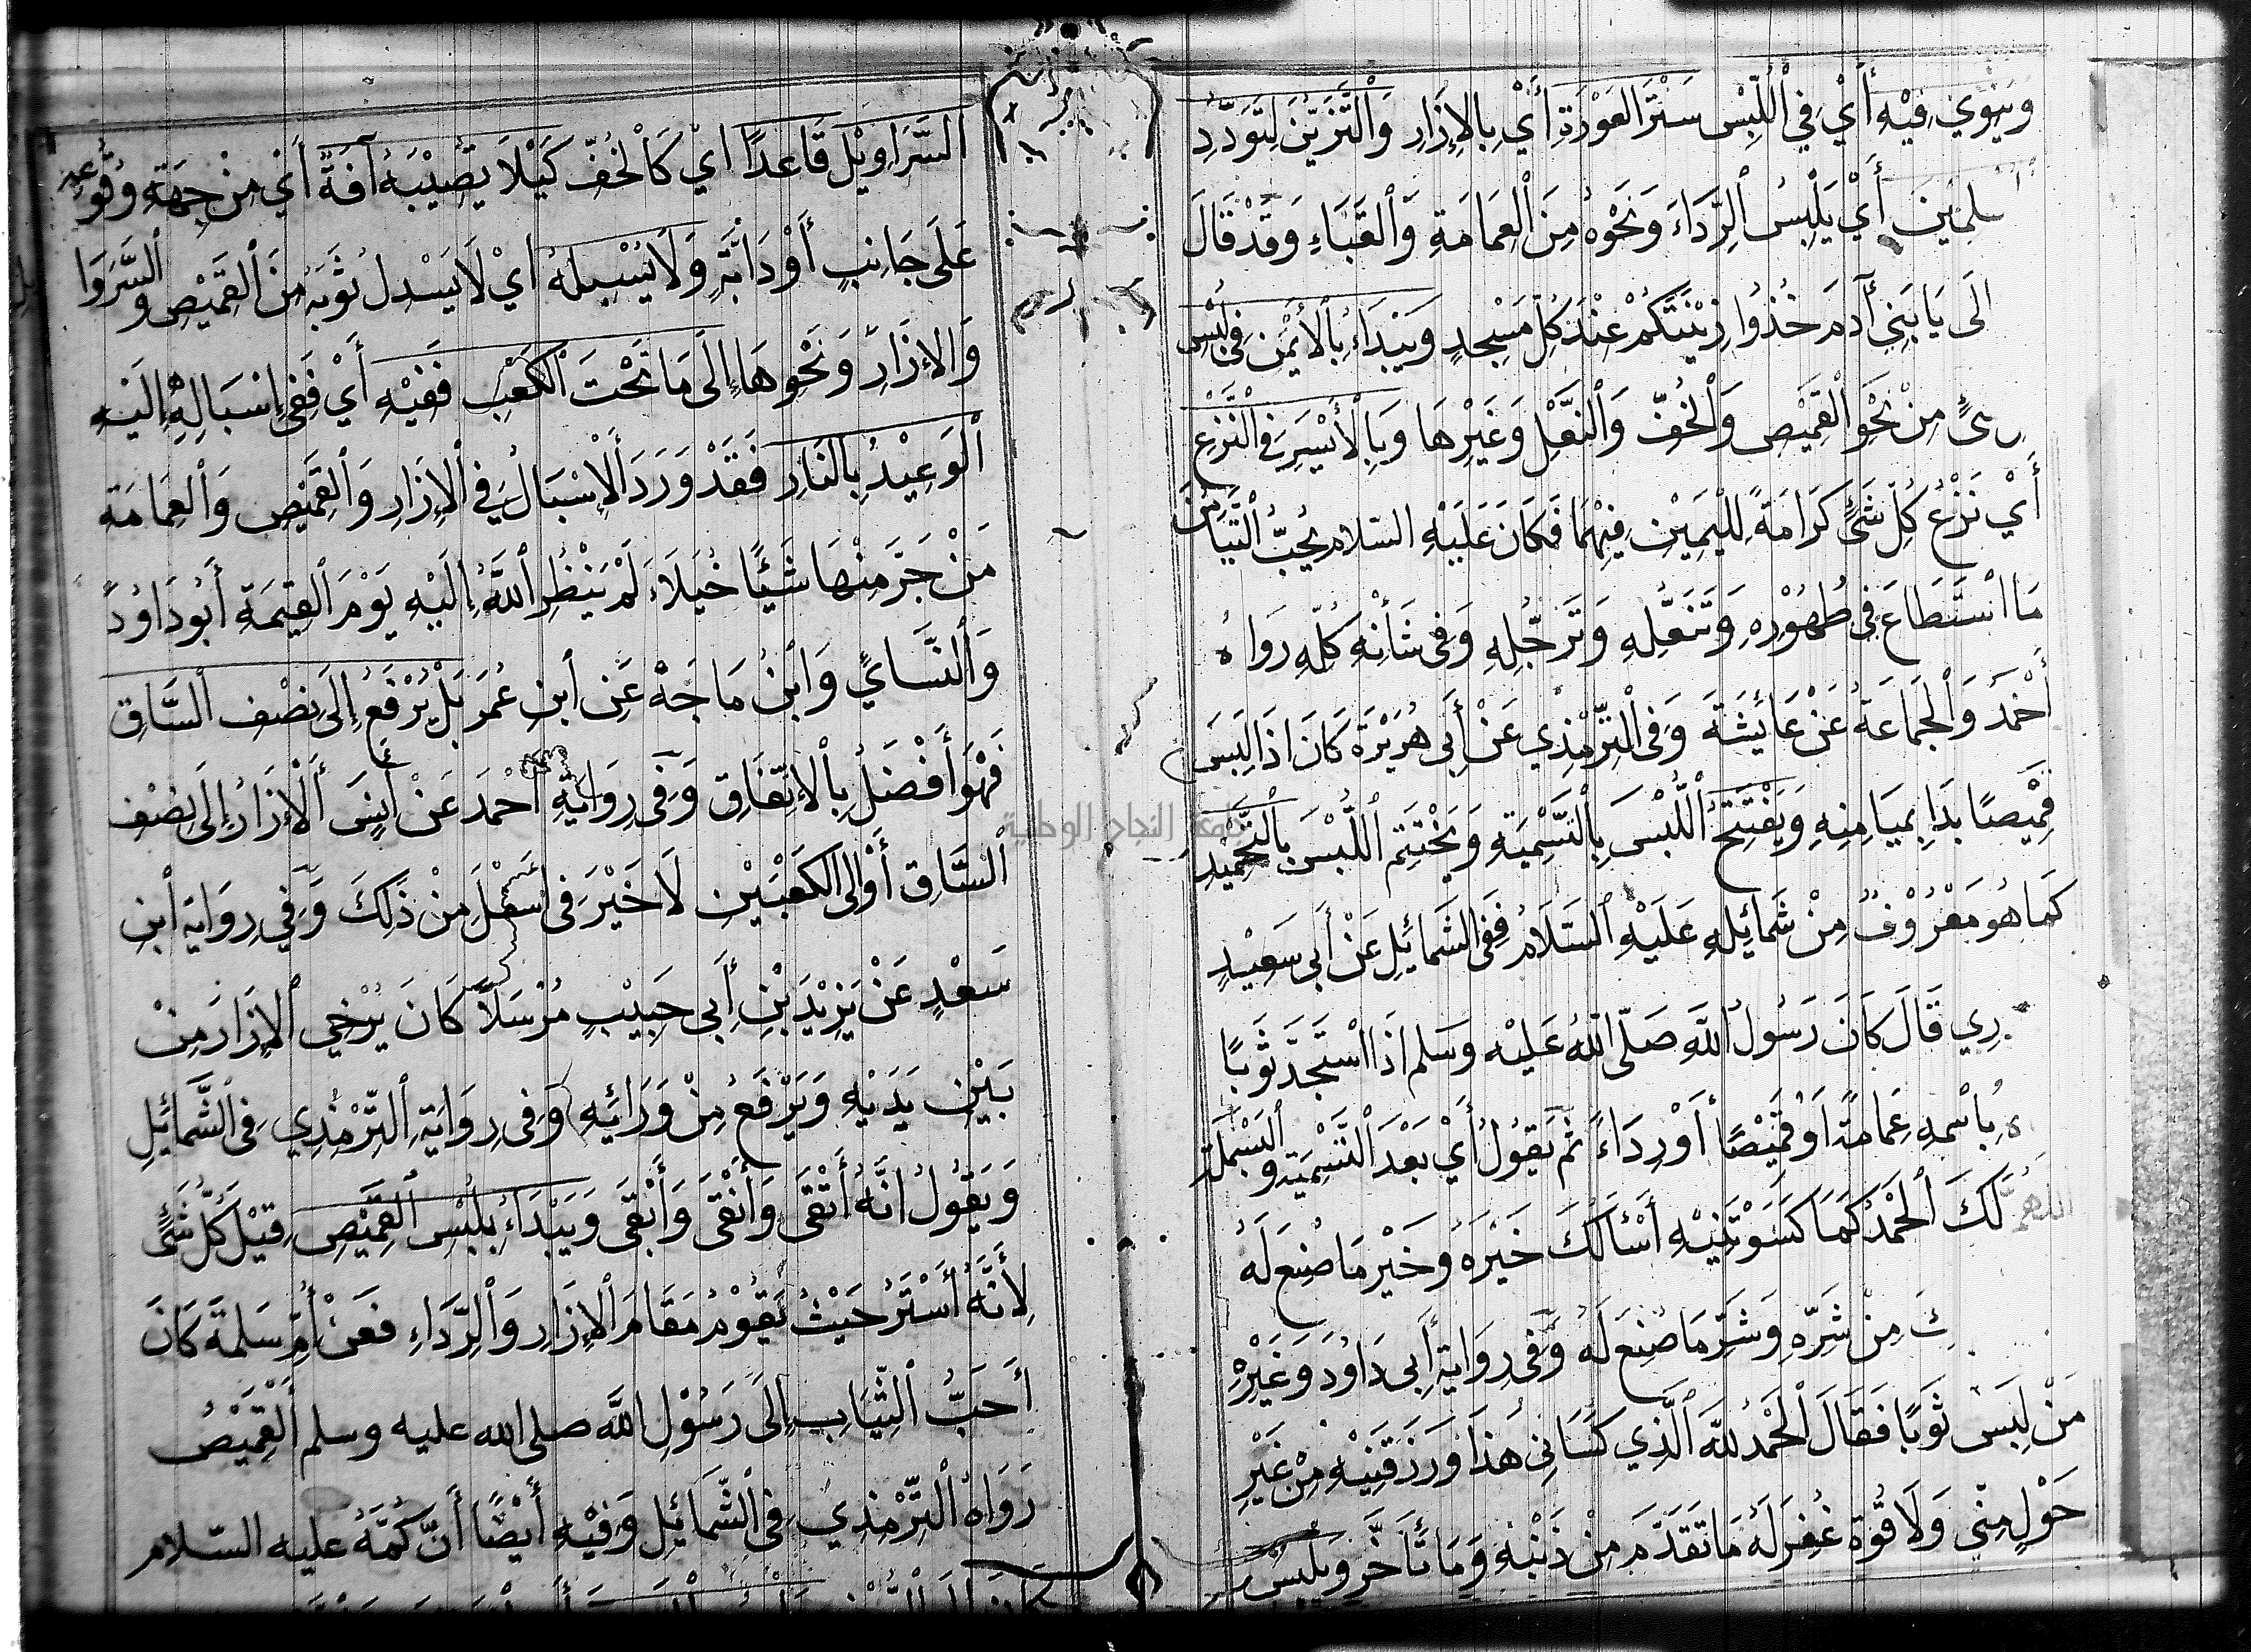 وَيَنْوِي فِيْهِ أَيْ فِي ٱللُّبْسِ سَتْرَ العَوْرَةِ أَيْ بِالإِزَارِ وَالتَّزَيُّنَ لِتَوَدُّدِ
أَيْ يَلْبِسُ الرِّدَاءَ وَنَحْوَهُ مِنَ العِمَامَةِ وَالقَبَاءِ وَقَدْ قَالَ
الَى يَا بَنِي آدَمَ خُذُوا زِيْنَتَكُمْ عِنْدَ كُلِّ مَسْجِدٍ وَيَبْدَاءُ بِالأَيْمَنِ فِى لُبْسِ
مِنْ نَحْوِ القَمِيْصِ وَالخُفِّ وَالنَّعْلِ وَغَيْرِهَا وَبِالأَيْسَرِ فِى النَّزْعِ
أَيْ نَزْعِ كُلِّ شَئٍ كَرَامَةً لِليَمِيْنِ فِيْهِمَا فَكَانَ عَلَيْهِ السّلام يُحِبُّ التَّيَامُنَ
مَا اسْتَطَاعَ فِى طُهُوْرِهِ وَتَنَعُّلِهِ وَتَرَجُّلِهِ وَفِى شَأْنِهِ كُلِّهِ رَوَاهُ
أَحْمَدَ وَالجَمَاعَةُ عَنْ عَائِشَةَ وَفِى التِّرْمِذِي عَنْ أَبِى هُرَيْرَةَ كَانَ اذَا لَبِسَ
قَمِيْصًا بَدَا بِمَيَامِنِهِ وَيَفْتَتِحُ اللُّبْسَ بِالتَّسْمِيَةِ وَيَخْتَتِمُ اللُّبْسَ بِالتَّحْمِيْدِ
كَمَا هُوَ مَعْرُوْفٌ مِنْ شَمَائِلِهِ عَلَيْهِ السَّلَامُ فَفِى الشَّمَائِلِ عَنْ أَبِى سَعِيْدٍ
رِي قَالَ كَانَ رَسُولُ اللَّهِ صَلّى اللهُ عَلَيْهِ وَسَلم اذَا اسْتَجَدَّ ثَوْبًا
بِاسْمِهِ عِمَامَةً اَوْ قَمِيْصًا أَوْ رِدَاءً ثُمَّ يَقُولُ أَيْ بَعْدَ التَّسْمِيَةِ وَالبَسْمَلَةِ
اللهُمَّ لَكَ الحَمْدُ كَمَا كَسَوْتَنِيْهِ أَسْأَلُكَ خَيْرَهُ وَخَيْرَ مَا صُنِعَ لَهُ
مِنْ شَرِّهِ وَشَرِّ مَا صُنِعَ لَهُ وَفِى رِوَايَةِ أَبِى دَاوُدَ وَغَيْرِهِ
مَنْ لَبِسَ ثَوْبًا فَقَالَ الحَمْدُ لِلَّهِ الَّذِي كَسَانِى هَذَا وَرَزَقَنِيْهِ مِنْ غَيْرِ
حَوْلٍ مِنِّي وَلَا قُوَّةٍ غُفِرَ لَهُ مَا تَقَدَّمَ مِنْ ذَنْبِهِ وَمَا تَأَخَّرَ وَيَلْبَسُ
السَّرَاوِيْلَ قَاعِدًا ايْ كَالخُفِّ كَيْلَا يُصِيْبَهُ آفَةٌ أَيْ مِنْ جِهَةِ وُقُوْعِهِ
عَلَى جَانِبٍ أَوْ دَابَّةٍ وَلَا يُسْبِلهُ ايْ لَا يَسْدِلُ ثَوْبَهُ مِنَ القَمِيْصِ وَالسَّرَوَا
وَالإِزَارِ وَنَحْوِهَا إِلَى مَا تَحْتَ الكَعْبِ فَفِيْهِ أَيْ فَفِى إِسْبَالِهِ إِلَيْهِ
الوَعِيْدُ بِالنَارِ فَقَدْ وَرَدَ الإِسْبَالُ فِى الإِزَارِ وَالقَمِيْصِ وَالعِمَامَةِ
مَنْ جَرَّ مِنْهَا شَيْئًا خُيَلَاءَ لَمْ يَنْظُرِ اللَّهُ إِلَيْهِ يَوْمَ القِيمَةِ أَبُو دَاوُدَ
وَالنَّسَائِيُ وَابْنُ مَاجَهْ عَنِ ابنِ عُمَرَ بَلْ يُرْفَعُ إِلَى نِصْفِ السَّاقِ
فَهْوَ أَفْضَلُ بِالإتِّفَاقِ وَفِى رِوَايَةِ أَحْمَدَ عَنْ أَنَسٍ الإِزَارُ إِلَى نِصْفِ
السَّاقِ أَوْ الَى الكَعْبَيْنِ لَا خَيْرَ فِى اسْفَلَ مِنْ ذَلِكَ وَفِي رِوَايَةِ ابْنِ
سَعْدٍ عَنْ يَزِيْدَ بْنِ أَبِى حَبِيْبٍ مُرْسَلًا كَانَ يُرْخِي الإِزَارَ مِنْ
بَيْنِ يَدَيْهِ وَيَرْفَعُ مِنْ وَرَائِهِ وَفِى رِوَايَةِ التِّرْمِذِي فِى الشَّمَائِلِ
وَيَقُولُ انَّهُ أَتْقَى وَأَنْقَى وَأَبْقَى وَيَبْدَاءُ بِلُبْسِ القَمِيْصِ قَبْلَ كُلِّ شَئٍ
لِأَنَّهُ أَسْتَرُ حَيْثُ يَقُوْمُ مَقَامَ الإِزَارِ وَالرِّدَاءِ فَعَنْ أُمِّ سَلمَةَ كَانَ
أَحَبُّ الثِّيَابِ إِلَى رَسُوْلِ اللَّهِ صلى الله عليه وسلم القَمِيْصُ
رَوَاهُ التِّرْمِذِيُّ فِى الشَّمَائِلِ وَفِيْهِ أَيْضًا أَنَّ كُمَّهُ عليه السّلام